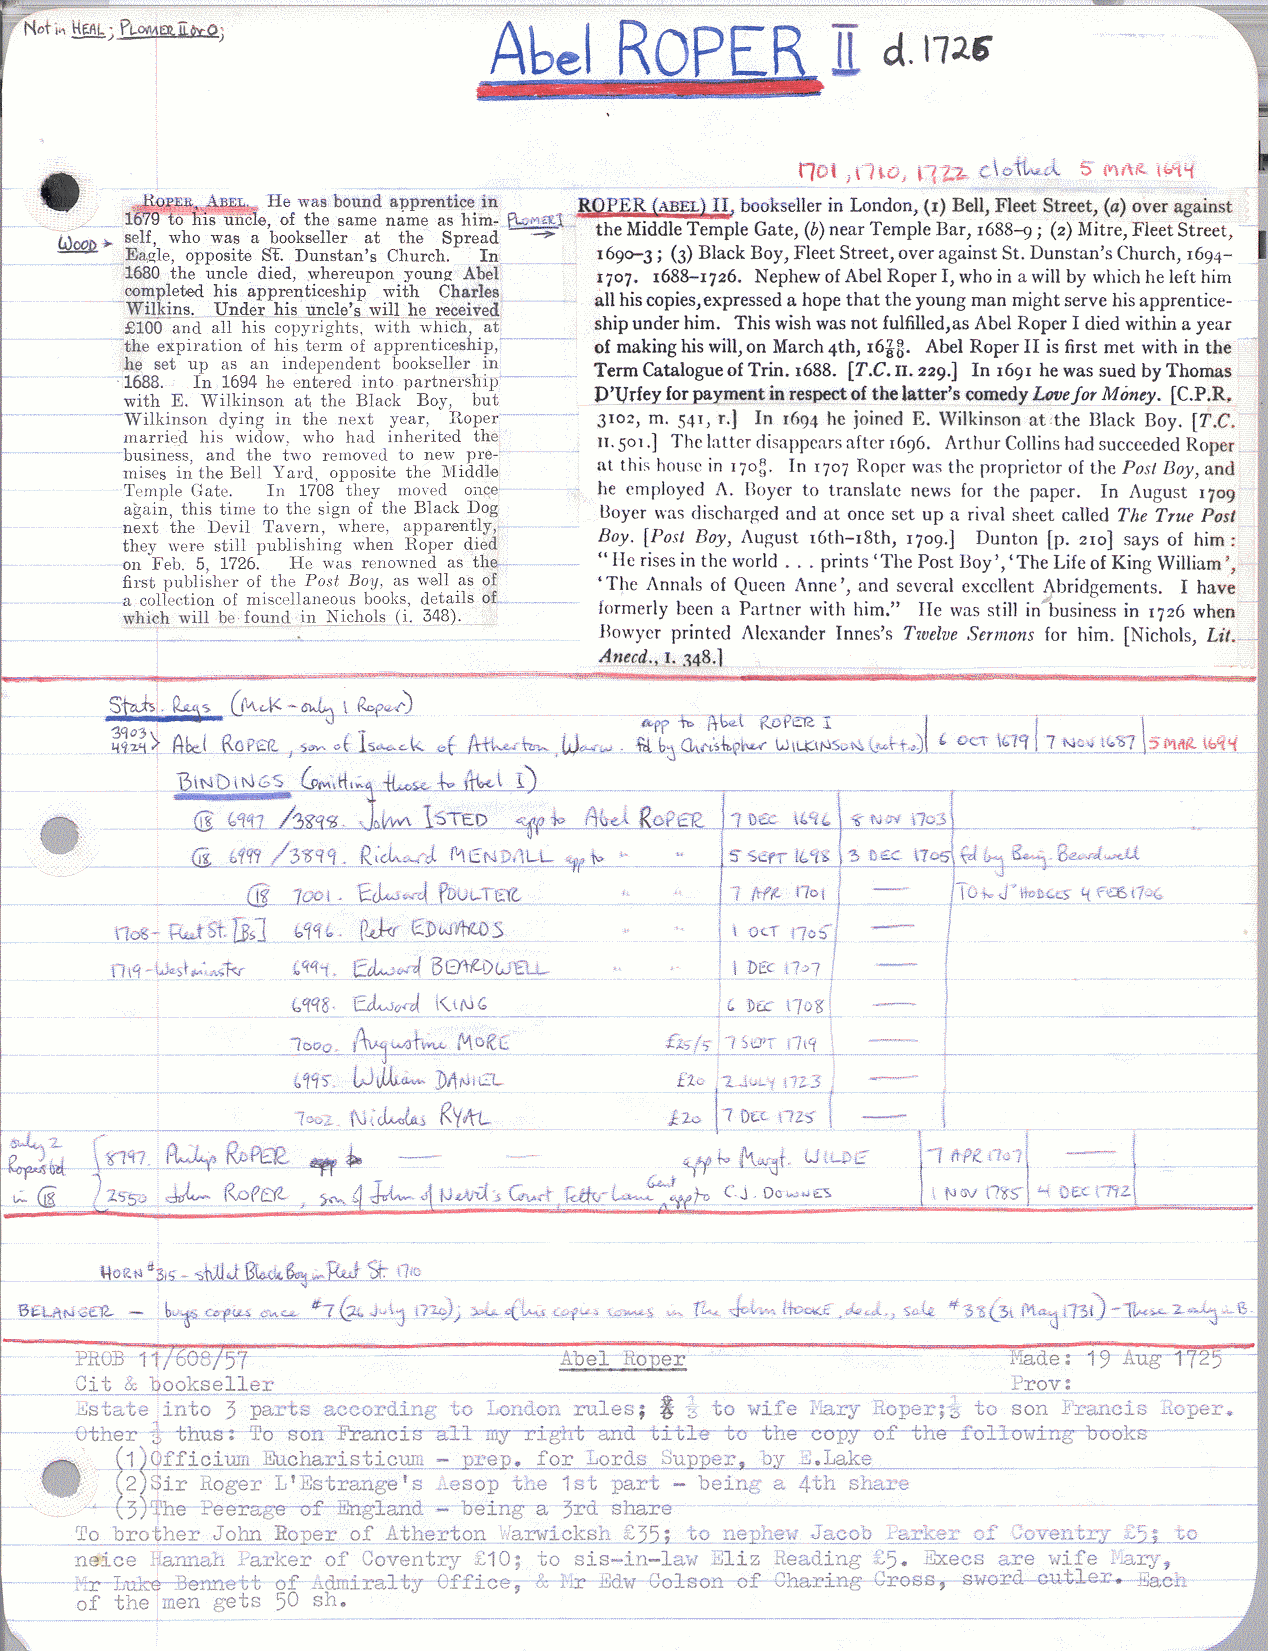 Not in HEAL; PLOMER II or O;
Abel ROPER II d. 1726
1701, 1710, 1722 clothed 5 MAR 1694
WOOD →
ROPER, ABEL. He was bound apprentice in
1679 to his uncle, of the same name as him-
self, who was a bookseller at the Spread
Eagle, opposite St. Dunstan's Church. In
1680 the uncle died, whereupon young Abel
completed his apprenticeship with Charles
Wilkins. Under his uncle's will he received
£100 and all his copyrights, with which, at
the expiration of his term of apprenticeship,
he set up as an independent bookseller in
1688. In 1694 he entered into partnership
with E. Wilkinson at the Black Boy, but
Wilkinson dying in the next year, Roper
married his widow, who had inherited the
business, and the two removed to new pre-
mises in the Bell Yard, opposite the Middle
Temple Gate. In 1708 they moved once
again, this time to the sign of the Black Dog
next the Devil Tavern, where, apparently,
they were still publishing when Roper died
on Feb. 5, 1726. He was renowned as the
first publisher of the Post Boy, as well as of
a collection of miscellaneous books, details of
which will be found in Nichols (i. 348).
PLOMER I →
ROPER (ABEL) II, bookseller in London, (1) Bell, Fleet Street, (a) over against
the Middle Temple Gate, (b) near Temple Bar, 1688-9; (2) Mitre, Fleet Street,
1690-3; (3) Black Boy, Fleet Street, over against St. Dunstan's Church, 1694-
1707. 1688-1726. Nephew of Abel Roper I, who in a will by which he left him
all his copies, expressed a hope that the young man might serve his apprentice-
ship under him. This wish was not fulfilled, as Abel Roper I died within a year
of making his will, on March 4th, 16 79/80. Abel Roper II is first met with in the
Term Catalogue of Trin. 1688. [T.C. II. 229.] In 1691 he was sued by Thomas
D'Urfey for payment in respect of the latter's comedy Love for Money. [C.P.R.
3102, m. 541, r.] In 1694 he joined E. Wilkinson at the Black Boy. [T.C.
II. 501.] The latter disappears after 1696. Arthur Collins had succeeded Roper
at this house in 170 8/9. In 1707 Roper was the proprietor of the Post Boy, and
he employed A. Boyer to translate news for the paper. In August 1709
Boyer was discharged and at once set up a rival sheet called The True Post
Boy. [Post Boy, August 16th-18th, 1709.] Dunton [p. 210] says of him:
"He rises in the world . . . prints 'The Post Boy', 'The Life of King William',
'The Annals of Queen Anne', and several excellent Abridgements. I have
formerly been a Partner with him." He was still in business in 1726 when
Bowyer printed Alexander Innes's Twelve Sermons for him. [Nichols, Lit.
Anecd., I. 348.]
Stats. Regs (McK - only 1 Roper)
app to Abel ROPER I
3903
4924 > Abel ROPER, son of Isaack of Atherton, Warw. fd by Christopher WILKINSON (not t.o.) 6 OCT 1679 7 NOV 1687 5 MAR 1694
BINDINGS (omitting those to Abel I)
@ 18 6997 / 3898. John ISTED app to Abel ROPER 7 DEC 1696 8 NOV 1703
@ 18 6999 / 3899. Richard MENDALL app to " " 5 SEPT 1698 3 DEC 1705 fd by Benj. Beardwell
@ 18 7001. Edward POULTER " " 7 APR 1701 — TO to Jn HODGES 4 FEB 1706
1708 - Fleet St. [Bs] 6996. Peter EDWARDS " " 1 OCT 1705 —
1719 - Westminster 6994. Edward BEARDWELL " " 1 DEC 1707 —
6998. Edward KING 6 DEC 1708 —
7000. Augustine MORE £25/5 7 SEPT 1719 —
6995. William DANIEL £20 2 JULY 1723 —
7002. Nicholas RYAL £20 7 DEC 1725 —
only 2
Ropers bd
in @ 18
8797. Philip ROPER — — app to Margt. WILDE 7 APR 1707 —
2550 John ROPER, son of John of Nevil's Court, Fetter Lane, Gent app to C.J. DOWNES 1 NOV 1785 4 DEC 1792
HORN #315 - still at Black Boy in Fleet St. 1710
BELANGER — buys copies once #7 (26 July 1720); sale of his copies comes in The John HOOKE, decd., sale #38 (31 May 1731) - These 2 only in B.
PROB 11/608/57 Abel Roper Made: 19 Aug 1725
Cit & bookseller Prov:
Estate into 3 parts according to London rules; ⅓ to wife Mary Roper; ⅓ to son Francis Roper.
Other ⅓ thus: To son Francis all my right and title to the copy of the following books
(1) Officium Eucharisticum - prep. for Lords Supper, by E.Lake
(2) Sir Roger L'Estrange's Aesop the 1st part - being a 4th share
(3) The Peerage of England - being a 3rd share
To brother John Roper of Atherton Warwicksh £35; to nephew Jacob Parker of Coventry £5; to
neice Hannah Parker of Coventry £10; to sis-in-law Eliz Reading £5. Execs are wife Mary,
Mr Luke Bennett of Admiralty Office, & Mr Edw Colson of Charing Cross, sword cutler. Each
of the men gets 50 sh.